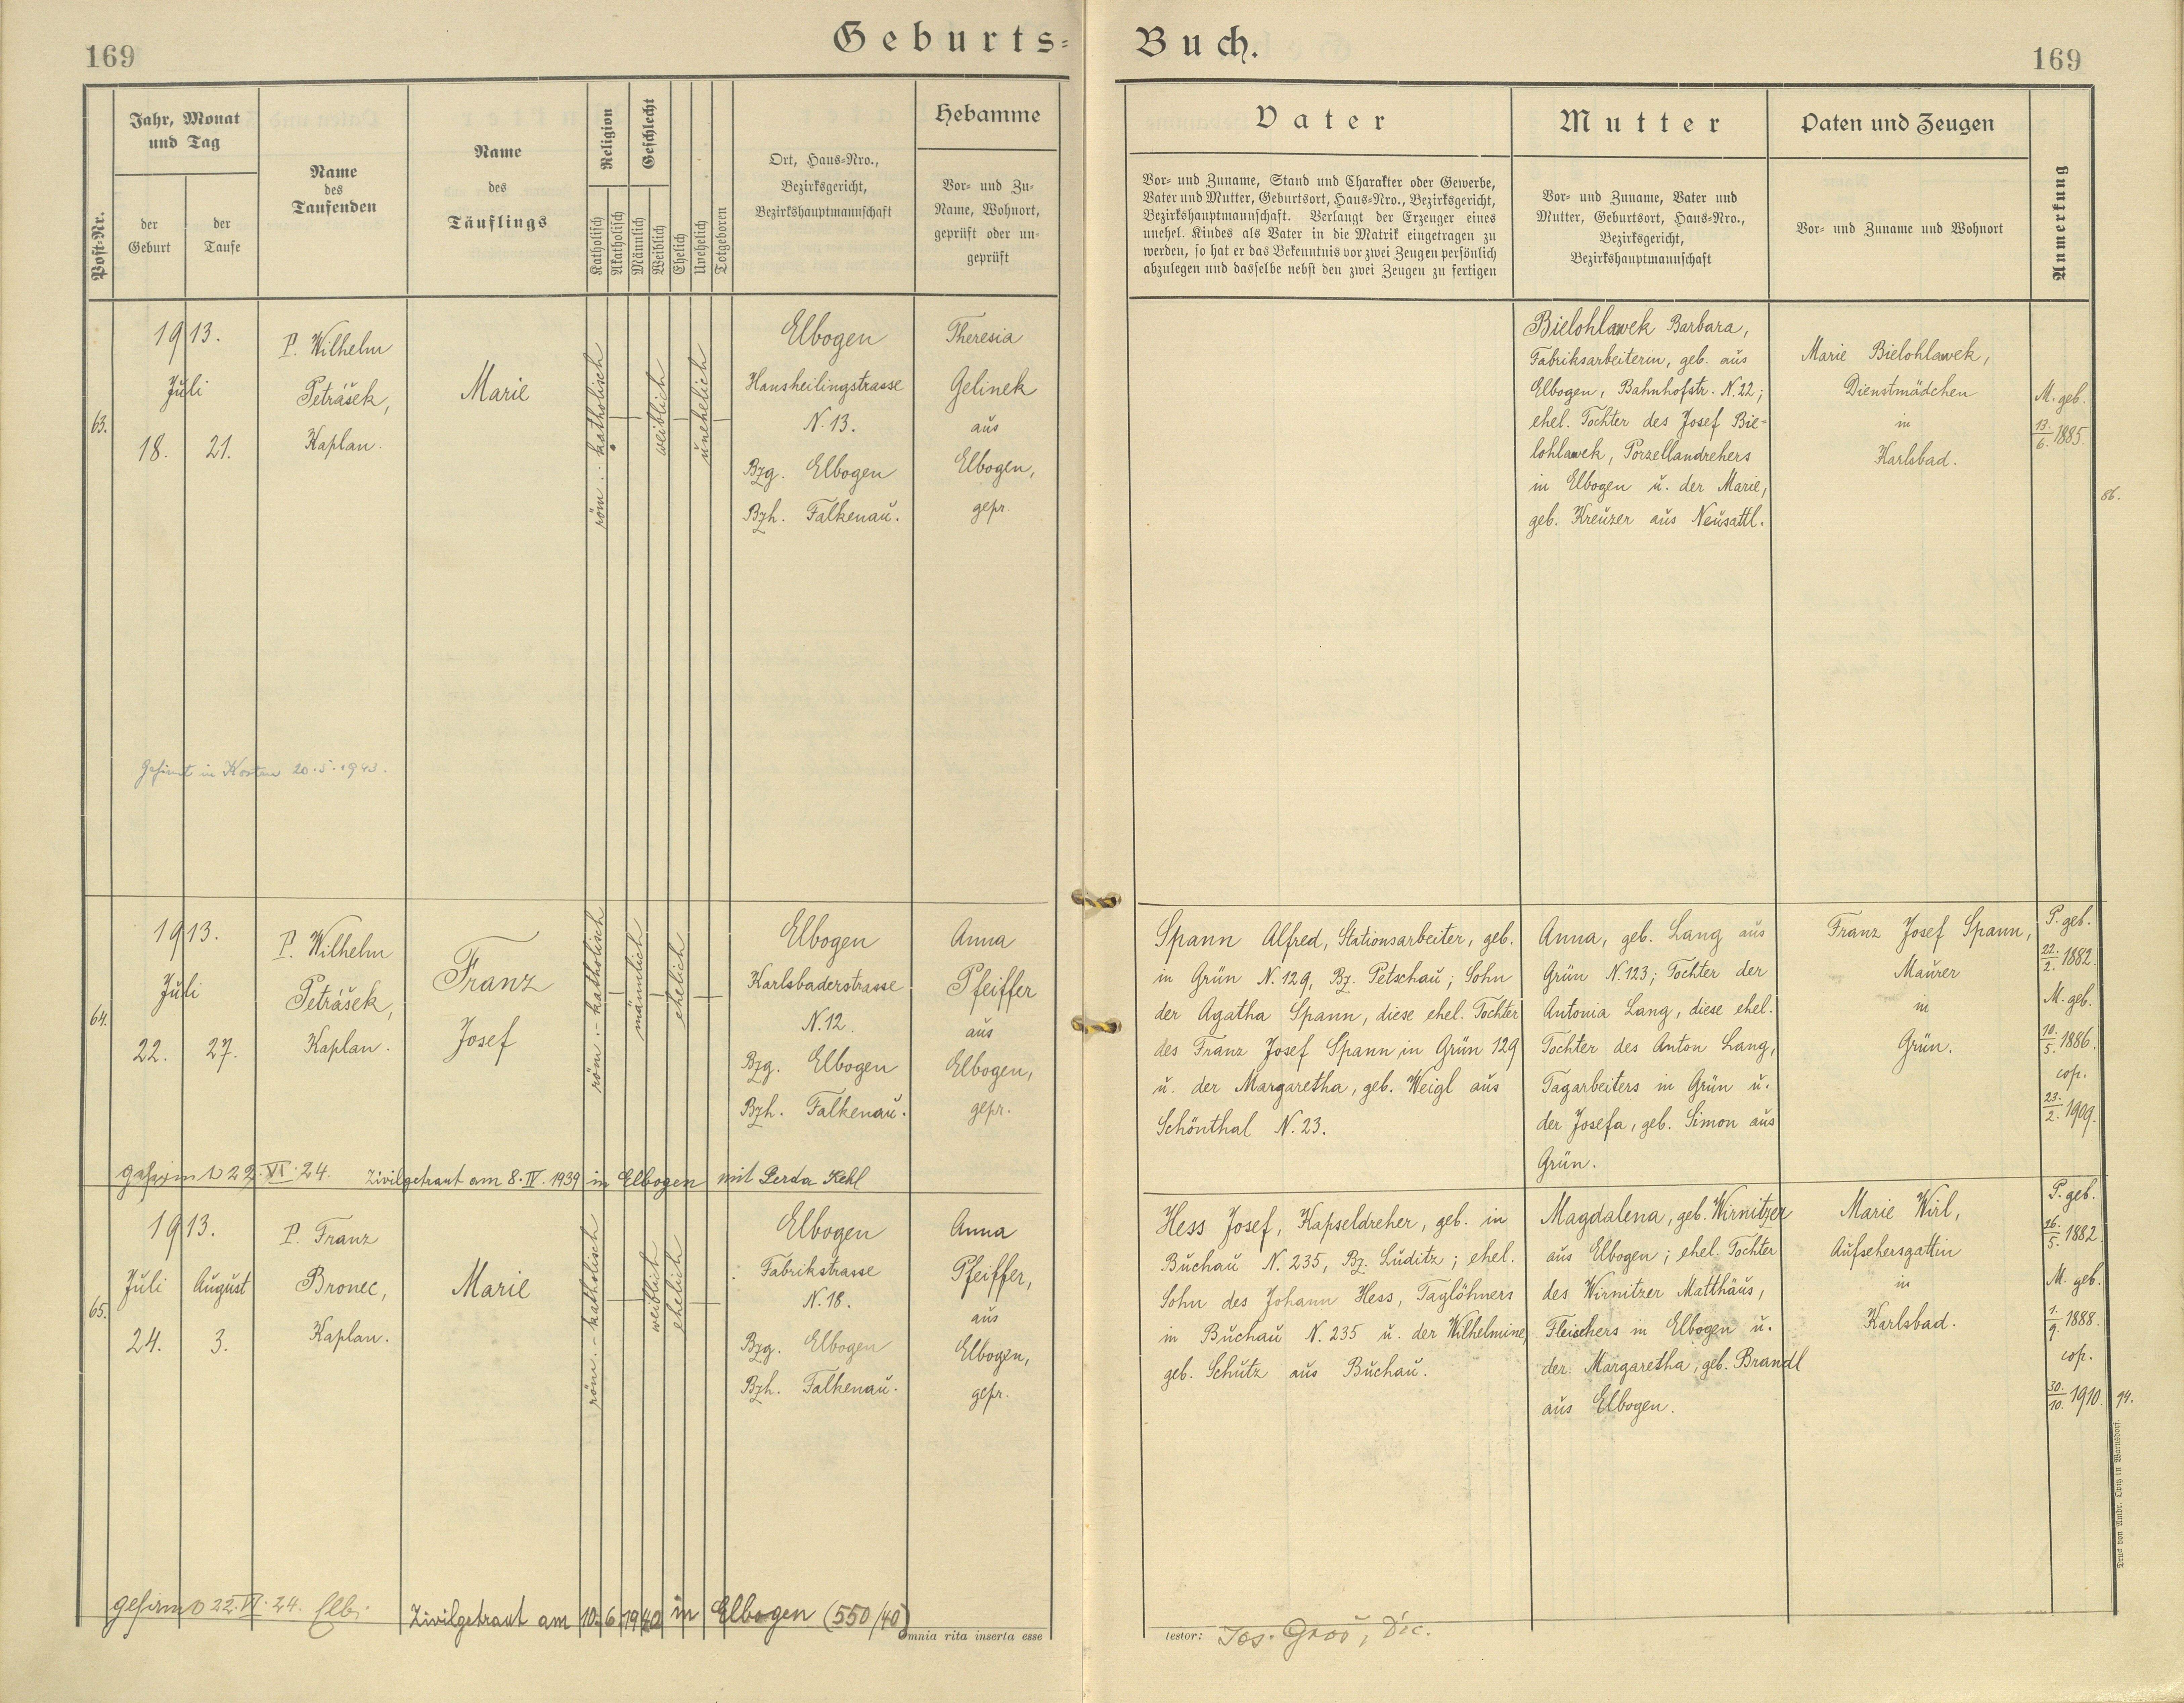 169
Geburts=
Buch.
169
Post-Nr.
Jahr, Monat
und Tag
der
Geburt
der
Taufe
Name
des
Taufenden
Name
des
Täuflings
Religion
Katholisch
Akatholisch
Geschlecht
Männlich
Weiblich
Ehelich
Unehelich
Totgeboren
Ort, Haus=Nro.,
Bezirksgericht,
Bezirkshauptmannschaft
Hebamme
Vor= und Zu=
Name, Wohnort,
geprüft oder un=
geprüft
Vater
Vor= und Zuname, Stand und Charakter oder Gewerbe,
Vater und Mutter, Geburtsort, Haus=Nro., Bezirksgericht,
Bezirkshauptmannschaft. Verlangt der Erzeuger eines
unehel. Kindes als Vater in die Matrik eingetragen zu
werden, so hat er das Bekenntnis vor zwei Zeugen persönlich
abzulegen und dasselbe nebst den zwei Zeugen zu fertigen
Mutter
Vor= und Zuname, Vater und
Mutter, Geburtsort, Haus=Nro.,
Bezirksgericht,
Bezirkshauptmannschaft
Paten und Zeugen
Vor= und Zuname und Wohnort
Anmerkung
63.
1913.
Juli
18. 21.
P. Wilhelm
Petrášek,
Kaplan.
Marie
röm.-katholisch
weiblich
unehelich
Elbogen
Hansheilingstrasse
N. 13.
Bzg. Elbogen
Bzh. Falkenau.
Theresia
Gelinek
aus
Elbogen,
gepr.
Bielohlawek Barbara,
Fabriksarbeiterin, geb. aus
Elbogen, Bahnhofstr. N. 22;
ehel. Tochter des Josef Bie=
lohlawek, Porzellandrehers
in Elbogen u. der Marie,
geb. Kreuzer aus Neusattl.
Marie Bielohlawek,
Dienstmädchen
in
Karlsbad.
M. geb.
13./6. 1885.
86.
Gefirmt in Kosten 20.5.1943.
64.
1913.
Juli
22. 27.
P. Wilhelm
Petrášek,
Kaplan.
Franz
Josef
röm.-katholisch
männlich
ehelich
Elbogen
Karlsbaderstrasse
N. 12.
Bzg. Elbogen
Bzh. Falkenau.
Anna
Pfeiffer
aus
Elbogen,
gepr.
Spann Alfred, Stationsarbeiter, geb.
in Grün N. 129, Bz. Petschau; Sohn
der Agatha Spann, diese ehel. Tochter
des Franz Josef Spann in Grün 129
u. der Margaretha, geb. Weigl aus
Schönthal N. 23.
Anna, geb. Lang aus
Grün N. 123; Tochter der
Antonia Lang, diese ehel.
Tochter des Anton Lang,
Tagarbeiters in Grün u.
der Josefa, geb. Simon aus
Grün.
Franz Josef Spann,
Maurer
in
Grün.
P. geb.
22./2. 1882.
M. geb.
10./5. 1886.
cop.
23./2. 1909.
gefirmt 22.VI.24. Zivilgetraut am 8.IV.1939 in Elbogen mit Gerda Kehl
65.
1913.
Juli August
24. 3.
P. Franz
Bronec,
Kaplan.
Marie
röm.-katholisch
weiblich
ehelich
Elbogen
Fabrikstrasse
N. 18.
Bzg. Elbogen
Bzh. Falkenau.
Anna
Pfeiffer,
aus
Elbogen,
gepr.
Hess Josef, Kapseldreher, geb. in
Buchau N. 235, Bz. Luditz; ehel.
Sohn des Johann Hess, Taglöhners
in Buchau N. 235 u. der Wilhelmine,
geb. Schütz aus Buchau.
Magdalena, geb. Wirnitzer
aus Elbogen; ehel. Tochter
des Wirnitzer Matthäus,
Fleischers in Elbogen u.
der Margaretha, geb. Brandl
aus Elbogen.
Marie Wirl,
Aufsehersgattin
in
Karlsbad.
P. geb.
26./5. 1882.
M. geb.
1./9. 1888.
cop.
30./10. 1910.
94.
gefirmt 22.VI.24. Elb. Zivilgetraut am 10.6.1940 in Elbogen (550/40)
omnia rita inserta esse
testor: Jos. Groš, Dic.
Druck von Ambr. Opitz in Warnsdorf.